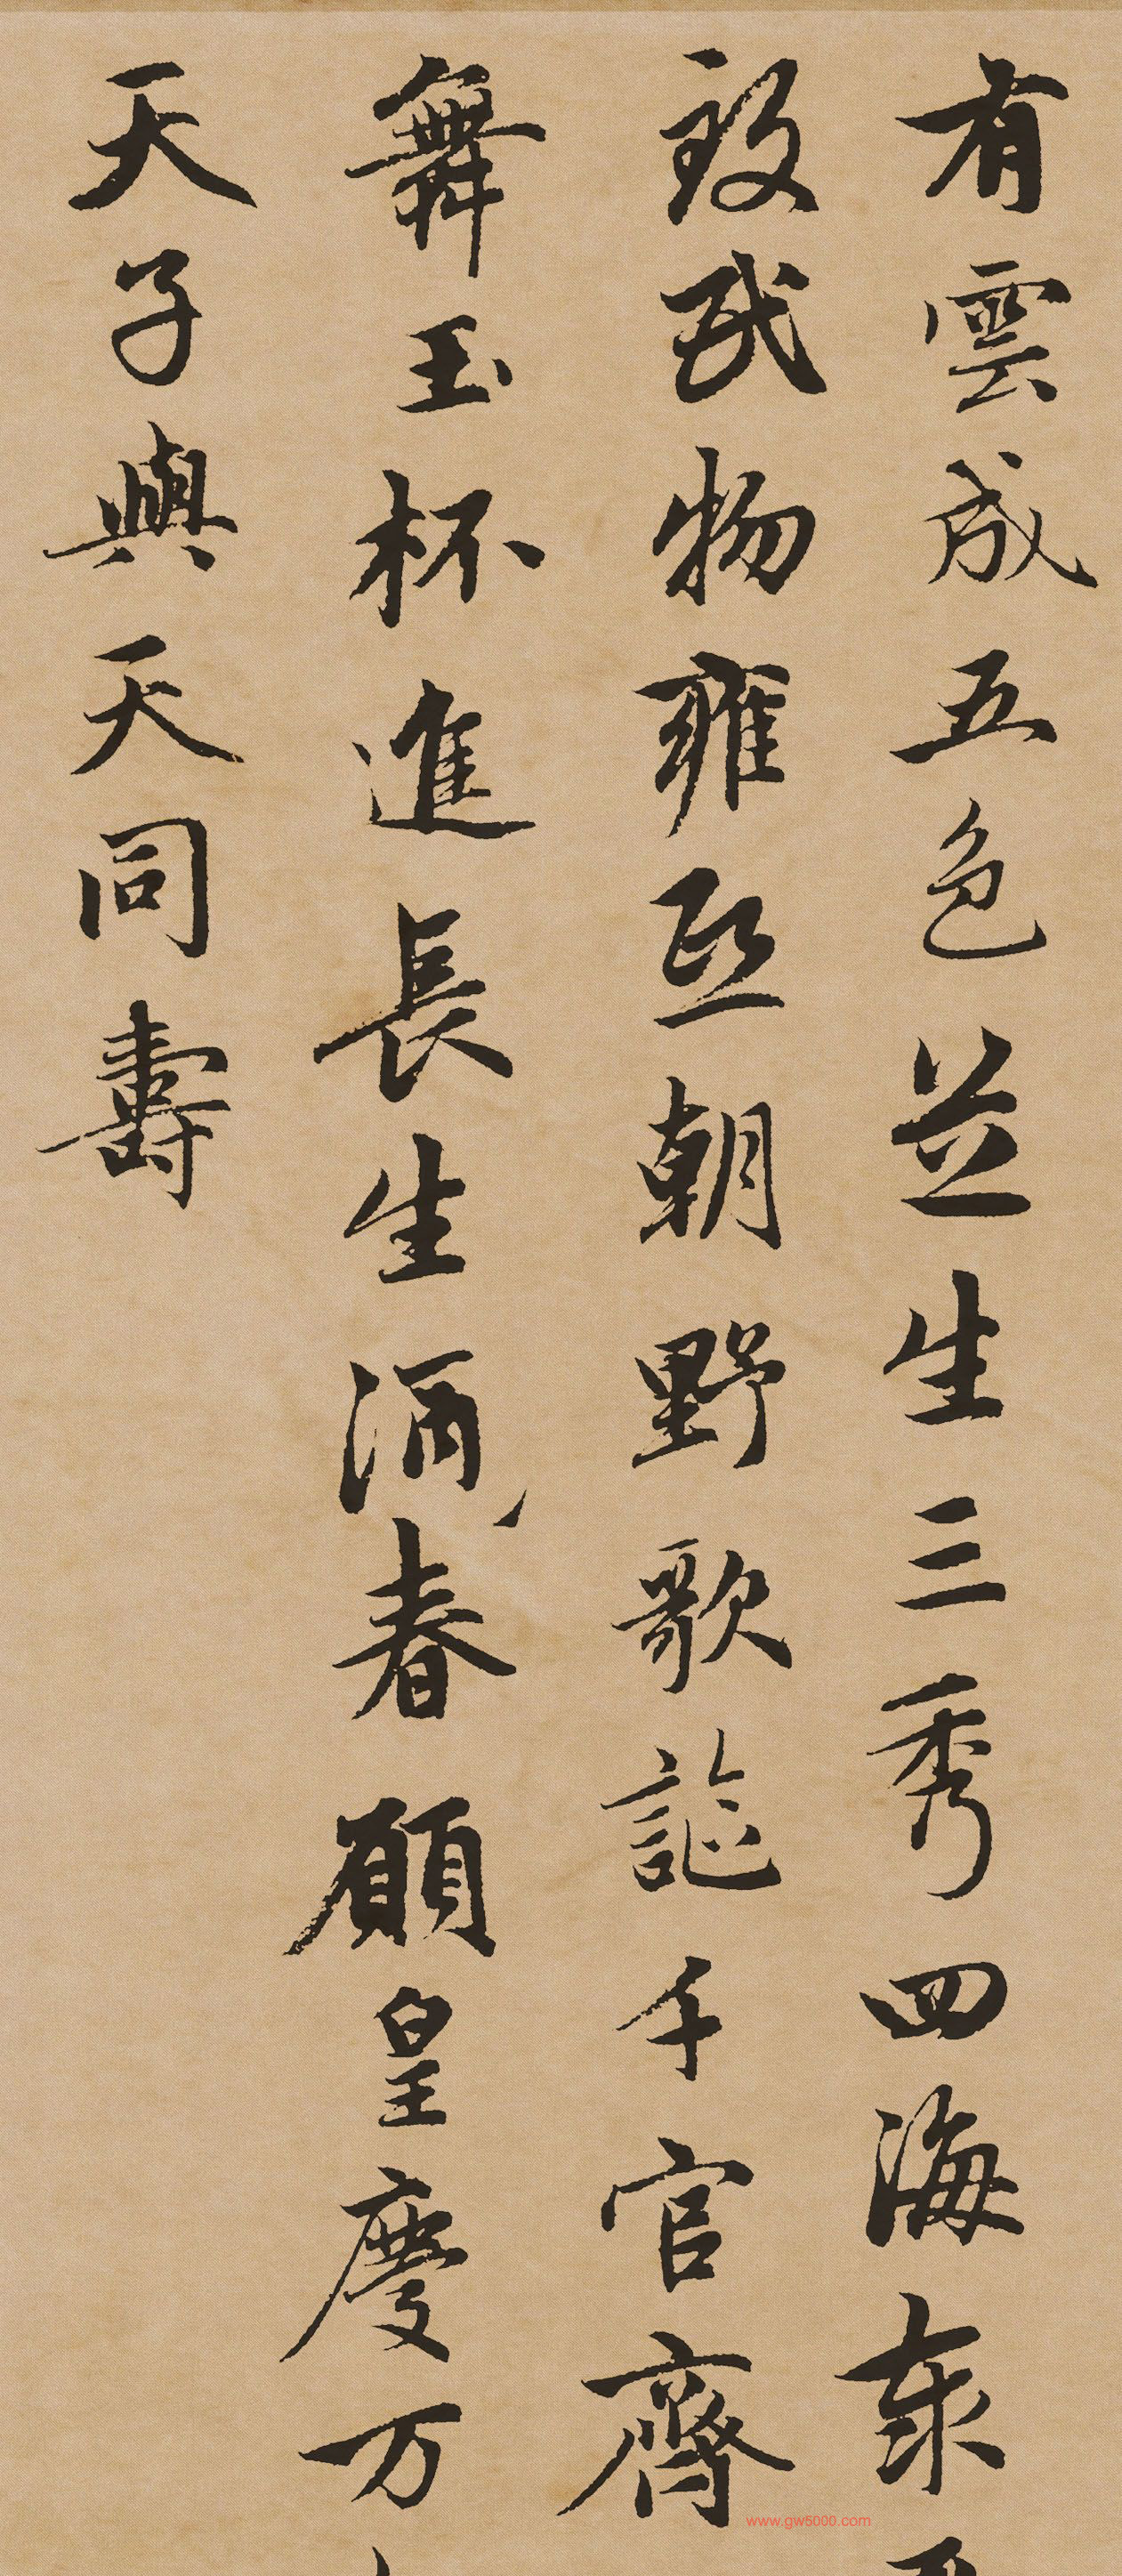 有雲成五色並生三秀四海泰
致民物雍熙朝野歌謳千官齊
舞玉杯進長生酒春願皇慶万
天子與天同壽
www.gw5000.com